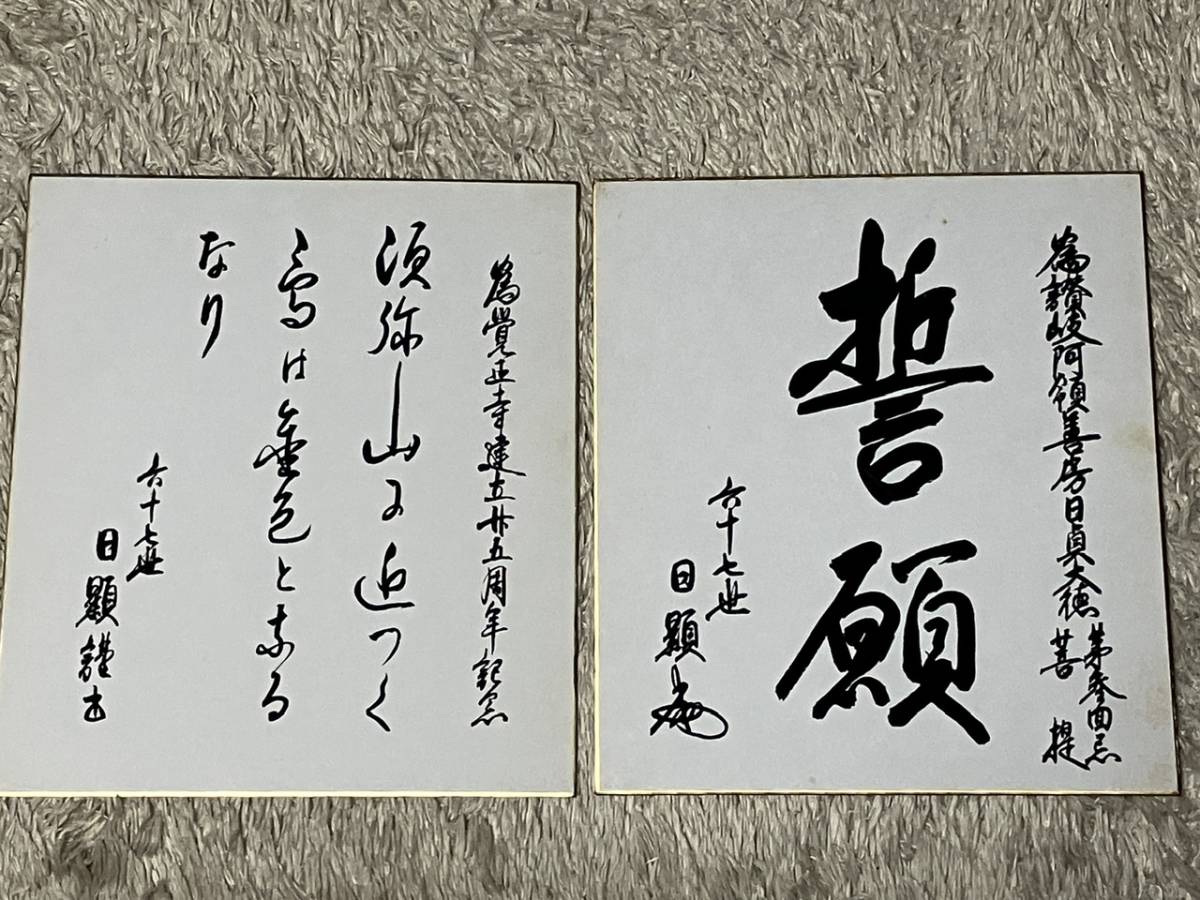 為讃岐阿領善房日貞大徳 第参回忌
菩提
誓願
六十七世
日顕
為覺正寺建立廿五周年記念
須弥山に近つく
鳥は金色となる
なり
六十七世
日顕謹書